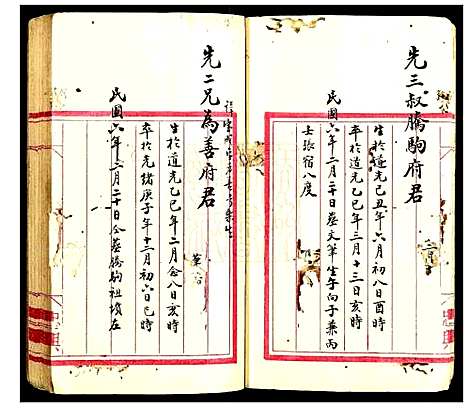 先三叔騰駒府君
生於道光己丑年六月初八日酉時
卒於道光乙巳年三月十三日亥時
民國六年二月二十日葬文筆生午向子兼丙
士張宿八度
先二兄為善府君
生於道光乙巳年二月廿八日亥時
卒於光緒庚子年十二月初六日巳時
民國六年二月二十日合葬騰駒祖墳左